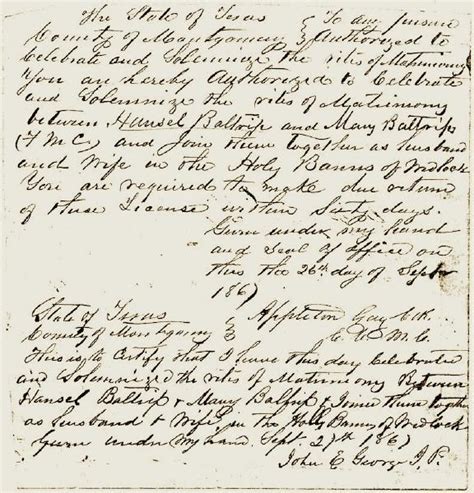 The State of Texas } To any person
County of Montgomery } Authorized to
Celebrate and Solemnize the rites of Matrimony
You are hereby Authorized to Celebrate
and Solemnize the rites of Matrimony
between Hansel Baltrip and Mary Baltrip
(F M C) and Join them together as Husband
and Wife in the Holy Banns of Wedlock
You are required to make due return
of these License within Sixty days.
Given under my hand
and Seal of Office on
this the 26th day of Septr
1867
Appleton Gay Clk.
State of Texas }
County of Montgomery } C. C. M. C.
This is to Certify that I have this day Celebrated
and Solemnized the rites of Matrimony Between
Hansel Baltrip & Mary Baltrip & Joined them together
as Husband & Wife in the Holy Banns of Wedlock
Given under My hand Sept. 27th 1867
John E George J. P.